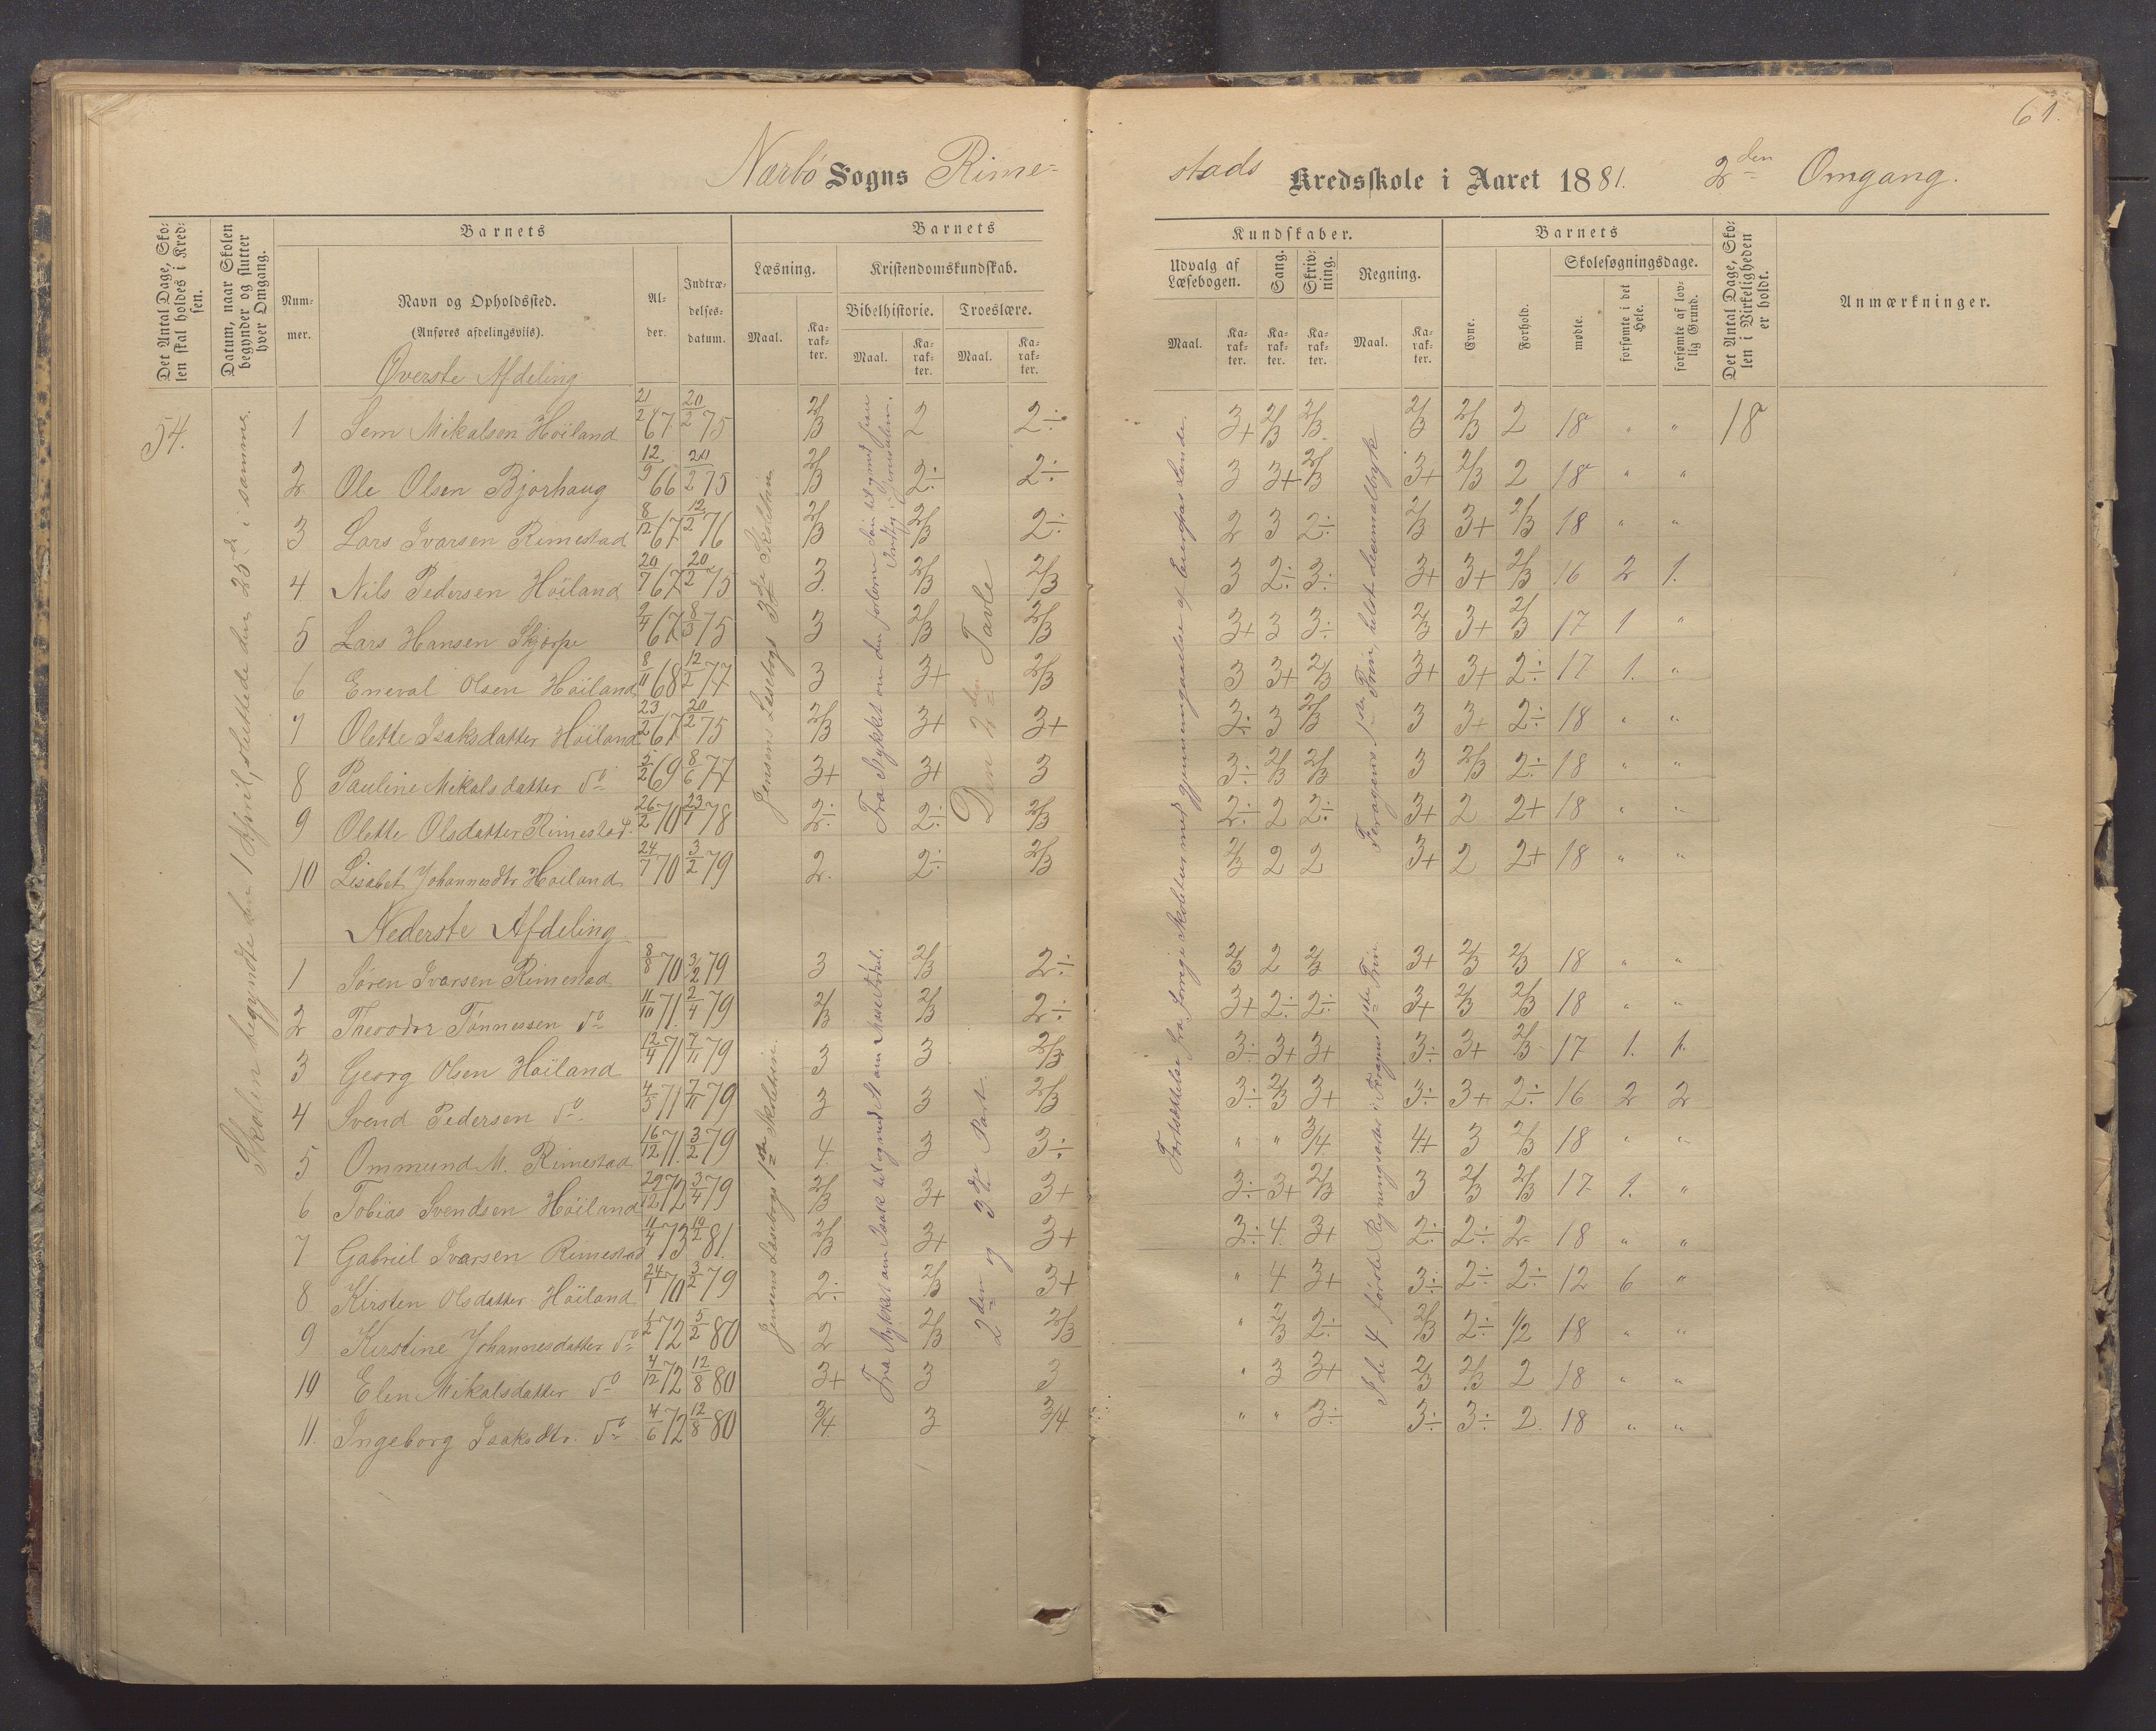 61.
Nærbö Sogns Rime-
stads Kredsskole i Aaret 1881. 2den Omgang.
Det Antal Dage, Sko-
len skal holdes i Kred-
sen.
Datum, naar Skolen
begynder og slutter
hver Omgang.
Barnets
Num-
mer.
Navn og Opholdssted.
(Anføres afdelingsviis).
Al-
der.
Indtræ-
delses-
datum.
Barnets
Læsning.
Maal.
Ka-
rak-
ter.
Kristendomskundskab.
Bibelhistorie.
Maal.
Ka-
rak-
ter.
Troeslære.
Maal.
Ka-
rak-
ter.
Kundskaber.
Udvalg af
Læsebogen.
Maal.
Ka-
rak-
ter.
Sang.
Ka-
rak-
ter.
Skriv-
ning.
Ka-
rak-
ter.
Regning.
Maal.
Ka-
rak-
ter.
Barnets
Evne.
Forhold.
Skolesøgningsdage.
mødte.
forsømte i det
Hele.
forsømte af lov-
lig Grund.
Det Antal Dage, Sko-
len i Virkeligheden
er holdt.
Anmærkninger.
54.
Skolen begyndte den 1 April, sluttede den 25de i samme.
Jensens Læsebogs 3die Skoletrin
Fra Stykket om den forlorne Søn til og med
Indtog i Jerusalem.
Den 2den Tavle
Fortsættelse fra forrige Skoletur med Gjennemgaaelse af Europas Lande.
18
Överste Afdeling
1 Sem Mikalsen Höiland 21/2 67 20/2 75 2/3 2 2÷ 3+ 2/3 2/3 2/3 2/3 2 18 " "
2 Ole Olsen Bjorhaug 12/9 66 20/2 75 2/3 2÷ 2÷ 3 3+ 2/3 3+ 2/3 2 18 " "
3 Lars Ivarsen Rimestad 8/12 67 12/2 76 2/3 2/3 2÷ 2 3 2÷ 2/3 3+ 2/3 18 " "
4 Nils Pedersen Höiland 20/7 67 20/2 75 3. 2/3 2/3 3 2÷ 3÷ 3+ 3+ 2/3 16 2 1.
5 Lars Hansen Skjorpe 2/4 67 8/3 75 3 2/3 2/3 3+ 3 3÷ 2/3 3+ 2/3 17 1 "
6 Eneval Olsen Höiland 8/11 68 12/2 77 3 3+ 2/3 3 3+ 2/3 3+ 3+ 2÷ 17 1. "
7 Olette Isaksdatter Höiland 23/2 67 20/2 75 2/3 3+ 3+ 3÷ 3 2/3 3 3+ 2÷ 18 " "
8 Pauline Mikalsdatter do 5/2 69 8/6 77 3+ 3+ 3 3÷ 2/3 2/3 3 2/3 2÷ 18 " "
9 Olette Olsdatter Rimestad. 26/2 70 23/1 78 2÷ 2÷ 2/3 2÷ 2 2÷ 3+ 2 2+ 18 " "
10 Lisabet Johannesdtr Höiland 24/7 70 3/2 79 2. 2÷ 2/3 2/3 2 2 3+ 2 2+ 18 " "
Nederste Afdeling
Jensens Læsebogs 1ste Skoletrin.
Fra Stykket om Isak til og med St om Mose Kald.
2den og 3die Part.
I de 4 første Regningsarter i Feragens 1ste Trin
1 Sören Ivarsen Rimestad 8/8 70 3/2 79 3 2/3 2÷ 2/3 2 2/3 3+ 2/3 2/3 18 " "
2 Theodor Tönnessen do 11/10 71. 2/4 79 2/3 2/3 2÷ 3+ 2÷ 2÷ 3+ 2/3 2/3 18 " "
3 Georg Olsen Höiland 12/4 71 7/11 79 3 3 2/3 3÷ 3+ 3+ 3÷ 3+ 2/3 17 1. 1.
4 Svend Pedersen do. 4/5 71 7/11 79 3 3 2/3 3÷ 2/3 3+ 3÷ 3+ 2÷ 16 2 2
5 Ommund M. Rimestad 16/12 71. 3/2 79 4. 3 3÷ " " 3/4. 4+ 3 2/3 18 " "
6 Tobias Svendsen Höiland 29/12 72 3/4 79 2/3 3+ 3+ 3÷ 3+ 2/3 3 2/3 2/3 17 1. "
7 Gabriel Ivarsen Rimestad 11/4 73 19/2 81. 2/3 3+ 3+ 3÷ 4. 3+ 2÷ 2÷ 2 18 " "
8 Kirsten Olsdatter Höiland 24/1 70 3/2 79 2÷ 2/3 3+ " 4 3+ 3÷ 2÷ 2÷ 12 6 "
9 Kirstine Johannesdatter do 1/2 72 5/2 80 2 2/3 2/3 " 2/3 2÷ 2/3 2÷ 1/2 18 " "
10 Elen Mikalsdatter do 4/12 72 12/8 80 3+ 3 3 " 3 3+ 2/3 2/3 2 18 " "
11. Ingeborg Isaksdtr. do 4/6 72 12/8 80 3/4. 3 3/4. " " 3÷ 3÷ 3÷ 2 18 " "